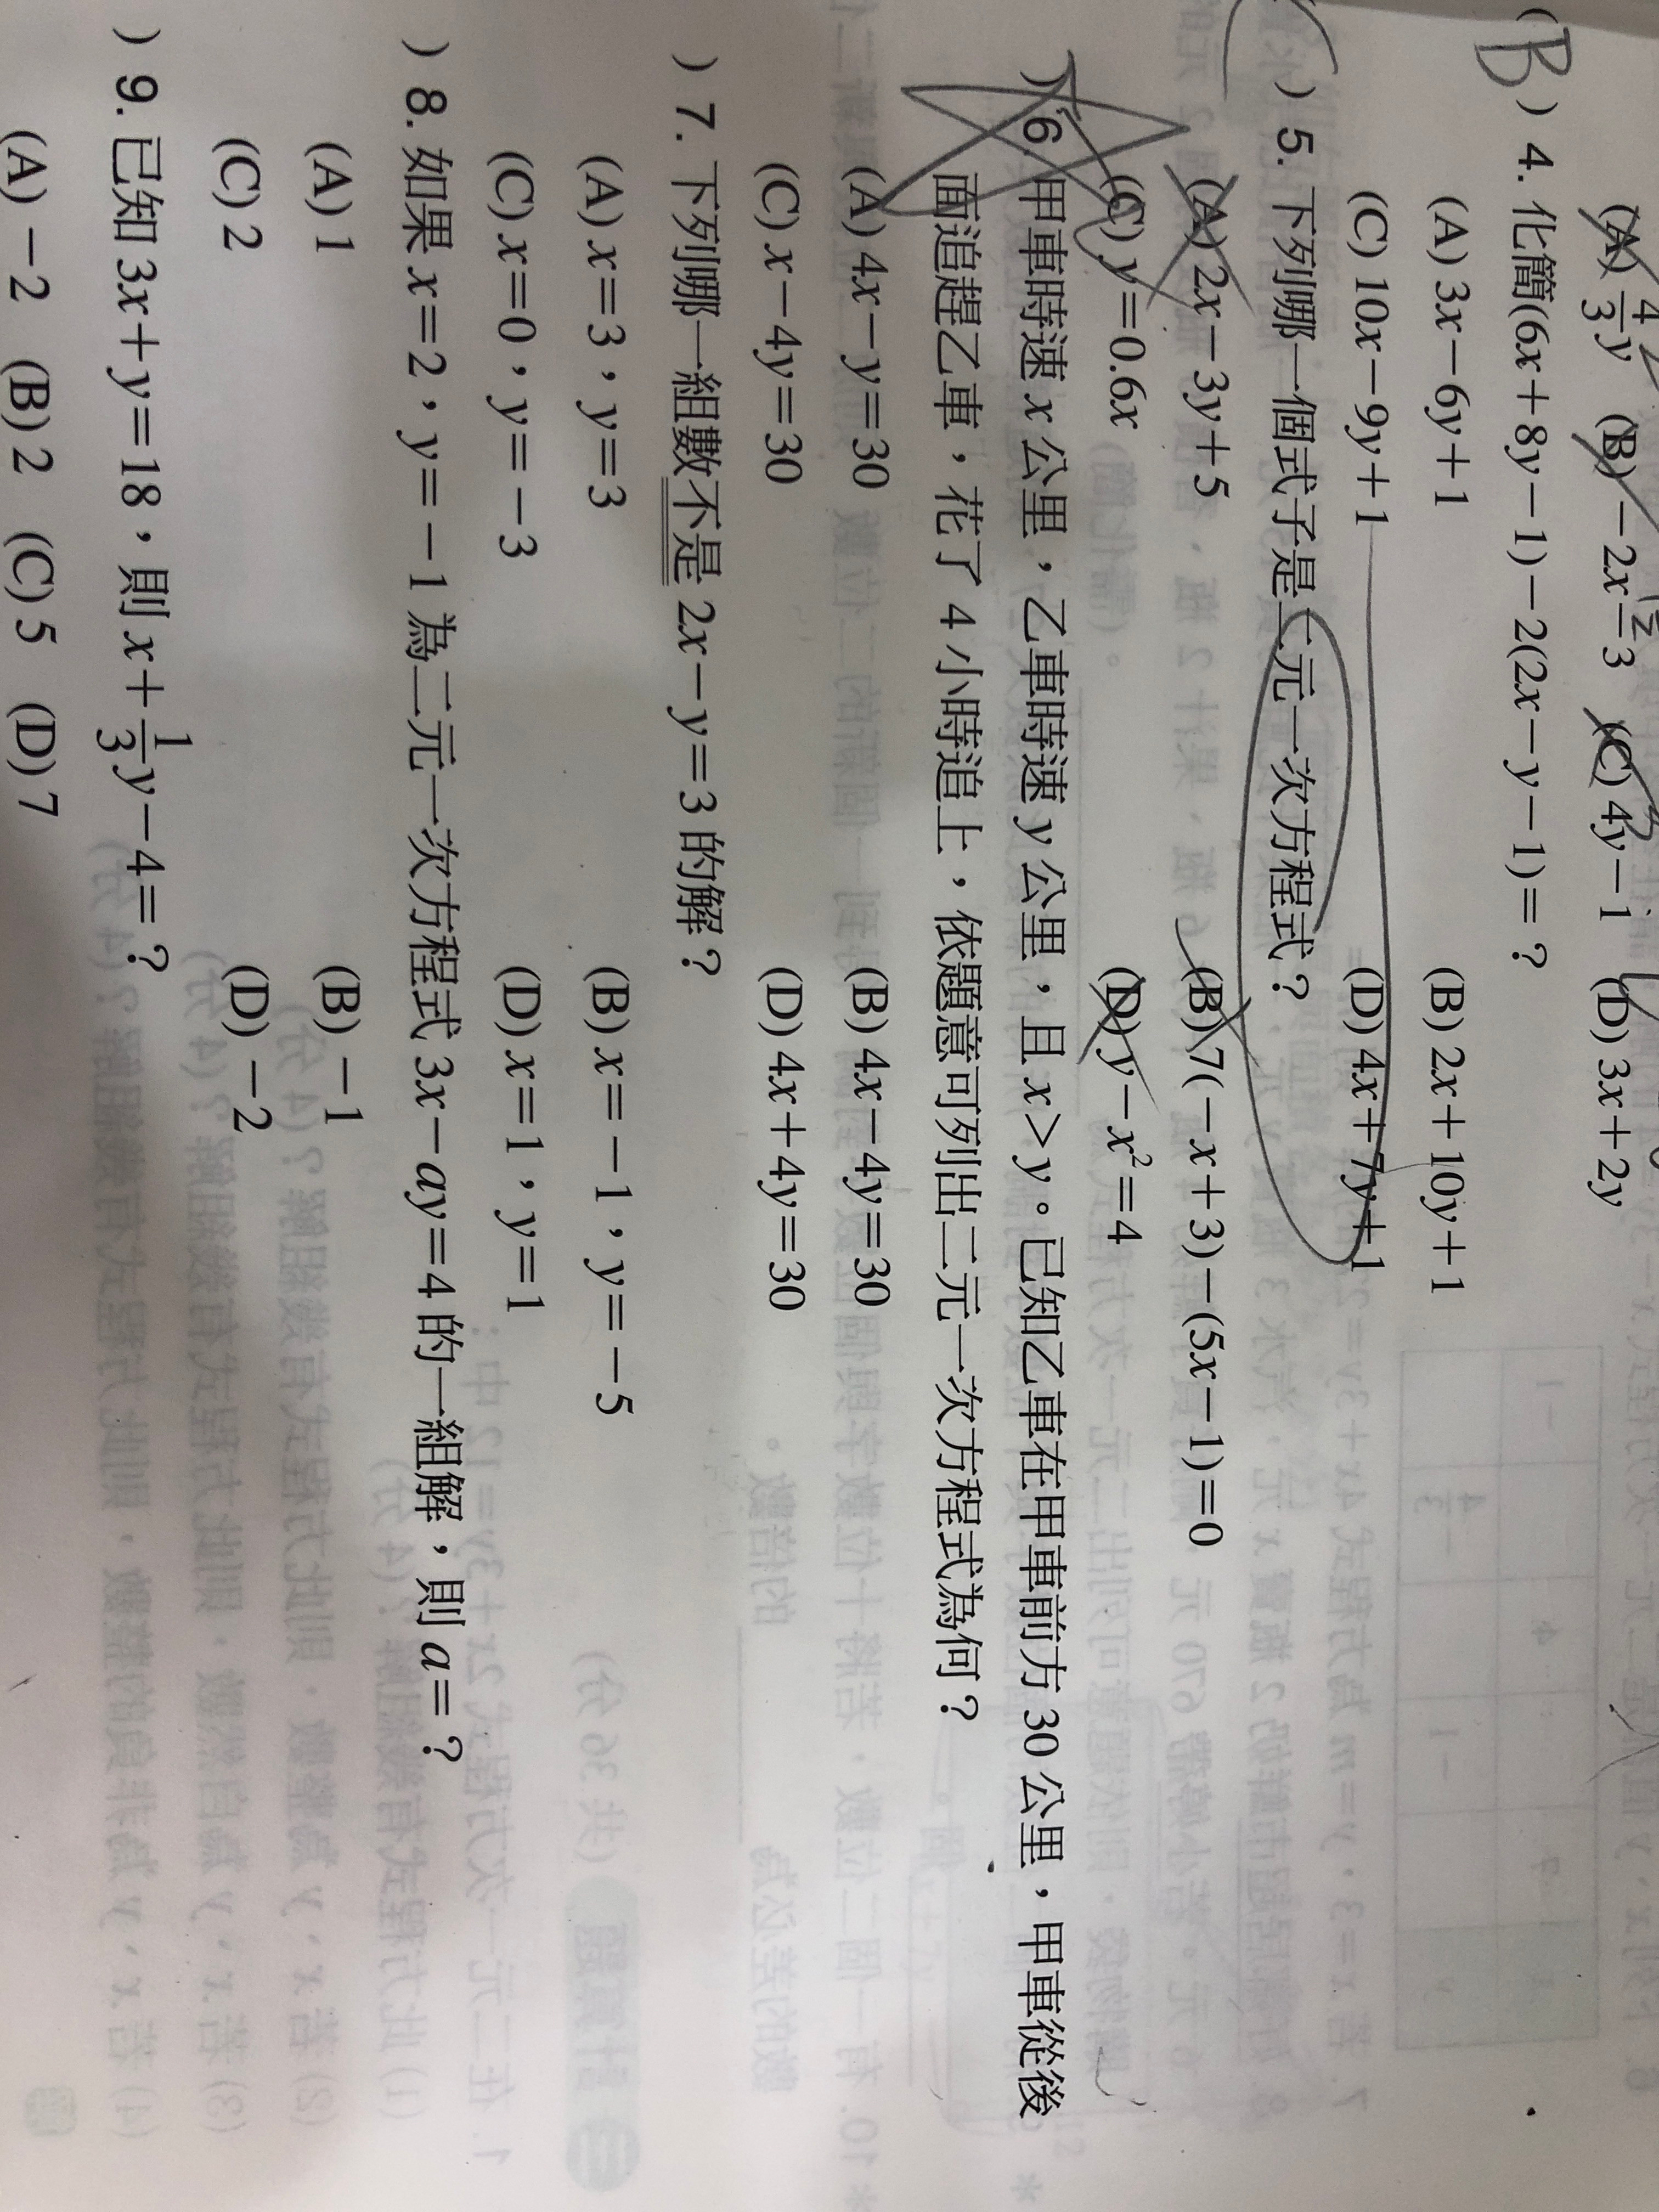 (A) 4/3 y (B) −2x−3 (C) 4y−1 (D) 3x+2y
(B) 4. 化簡(6x+8y−1)−2(2x−y−1)=?
(A) 3x−6y+1 (B) 2x+10y+1
(C) 10x−9y+1 (D) 4x+7y+1
) 5. 下列哪一個式子是二元一次方程式?
(A) 2x−3y+5 (B) 7(−x+3)−(5x−1)=0
(C) y=0.6x (D) y−x²=4
) 6. 甲車時速 x 公里,乙車時速 y 公里,且 x>y。已知乙車在甲車前方 30 公里,甲車從後
面追趕乙車,花了 4 小時追上,依題意可列出二元一次方程式為何?
(A) 4x−y=30 (B) 4x−4y=30
(C) x−4y=30 (D) 4x+4y=30
) 7. 下列哪一組數不是 2x−y=3 的解?
(A) x=3,y=3 (B) x=−1,y=−5
(C) x=0,y=−3 (D) x=1,y=1
) 8. 如果 x=2,y=−1 為二元一次方程式 3x−ay=4 的一組解,則 a=?
(A) 1 (B) −1
(C) 2 (D) −2
) 9. 已知 3x+y=18,則 x+1/3 y−4=?
(A) −2 (B) 2 (C) 5 (D) 7